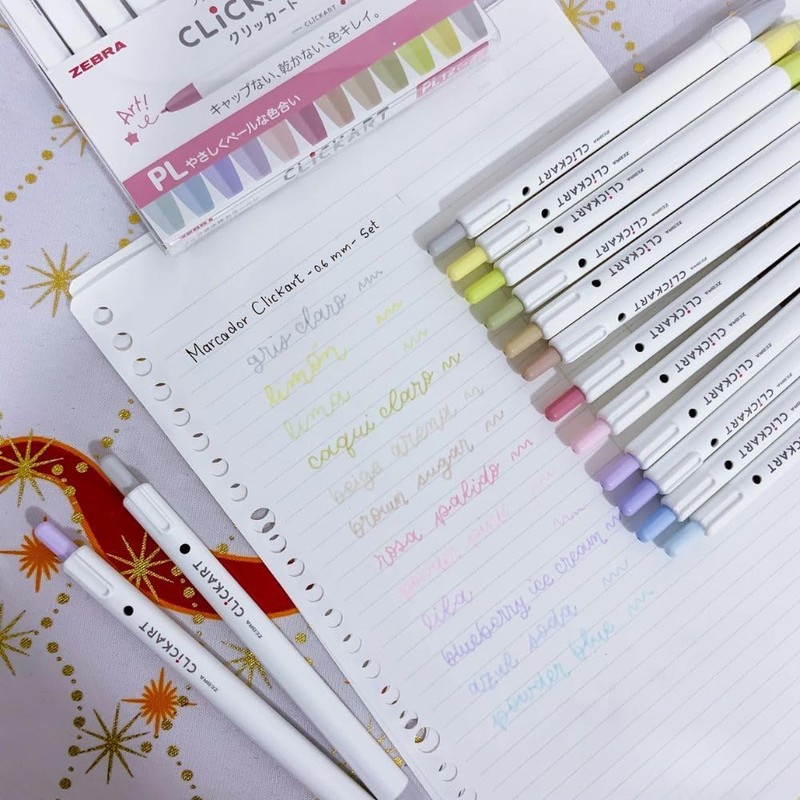 CLiCKART
クリッカート
CLICKART
ZEBRA
Art!
キャップない、乾かない、色キレイ。
PL やさしくペールな色合い
CLiCKART
ZEBRA
Marcador Clickart - 0.6 mm - Set
gris claro
limón
lima
caqui claro
beige arena
brown sugar
rosa palido
powder pink
lila
blueberry ice cream
azul soda
powder blue
CLiCKART ZEBRA
CLiCKART ZEBRA
CLiCKART ZEBRA
CLiCKART ZEBRA
CLiCKART ZEBRA
CLiCKART ZEBRA
CLiCKART ZEBRA
CLiCKART ZEBRA
CLiCKART ZEBRA
CLiCKART
CLiCKART
CLiCKART
CLiCKART ZEBRA
CLiCKART ZEBRA